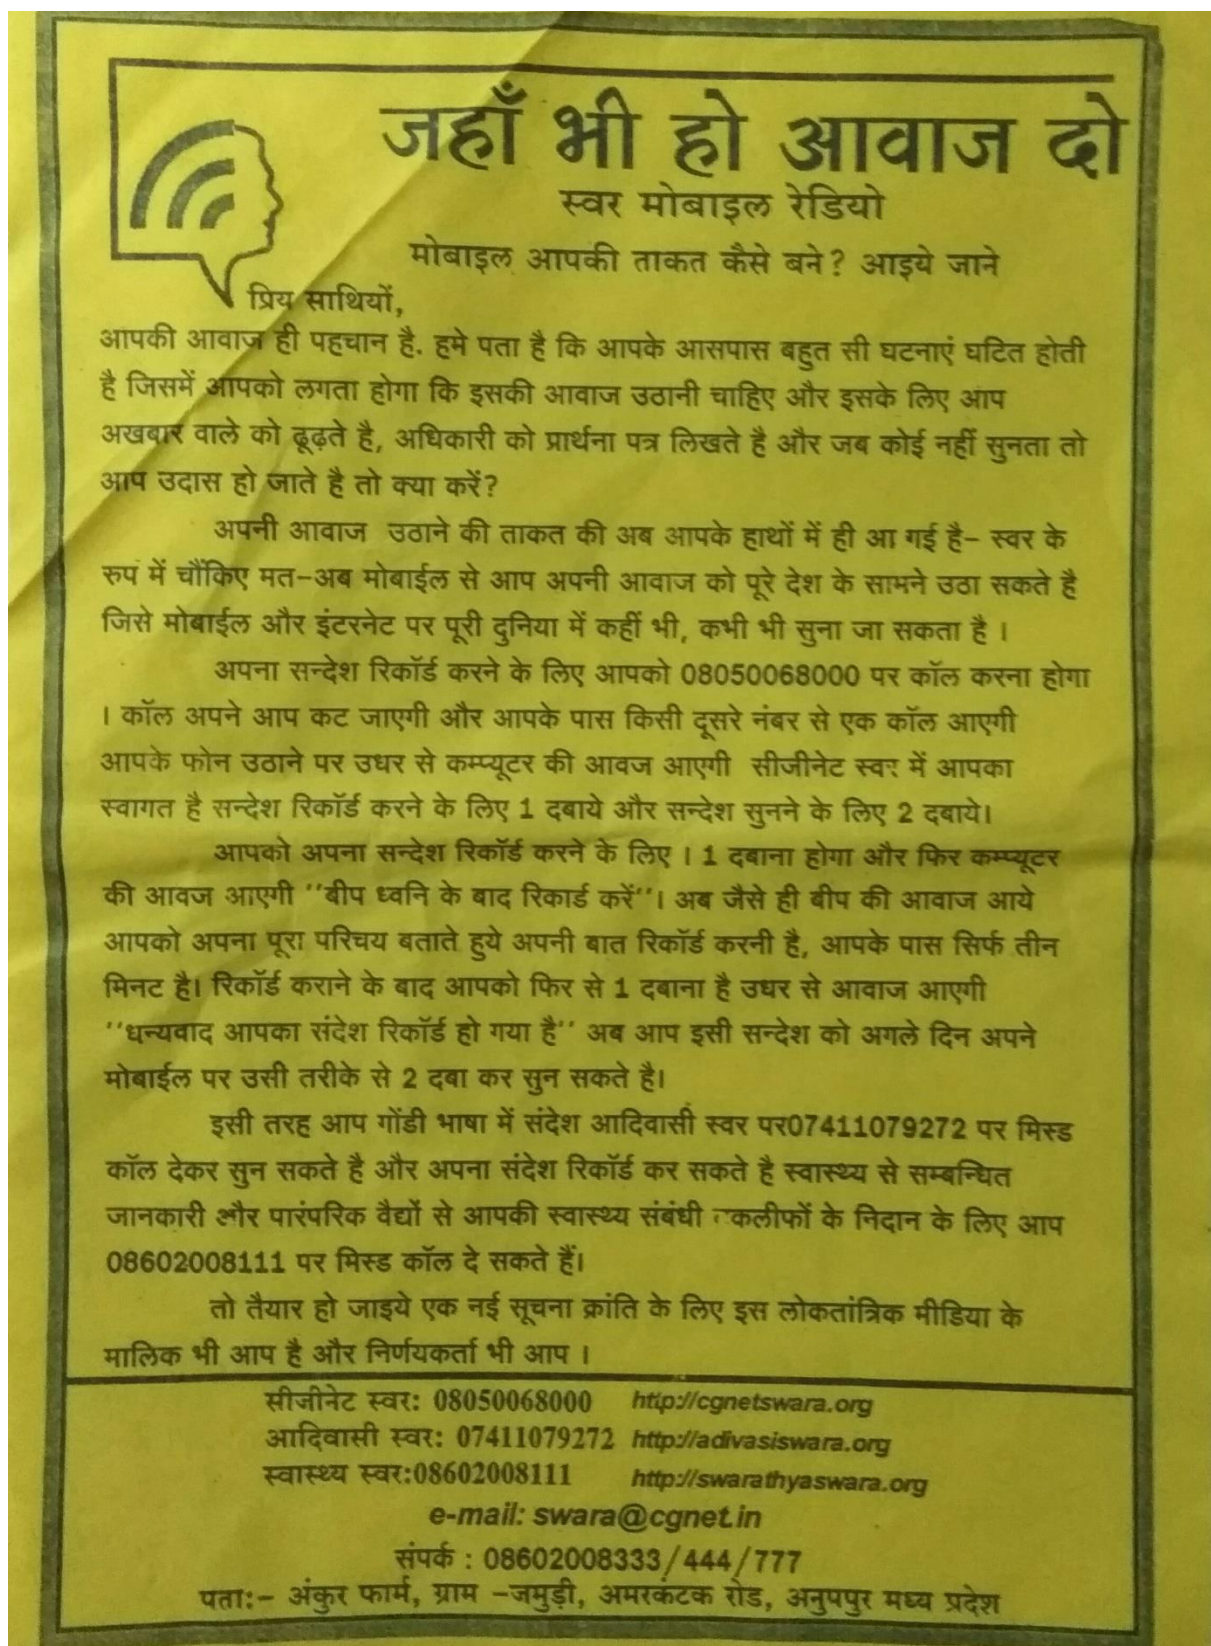 जहाँ भी हो आवाज दो
स्वर मोबाइल रेडियो
मोबाइल आपकी ताकत कैसे बने? आइये जाने
प्रिय साथियों,
आपकी आवाज ही पहचान है. हमे पता है कि आपके आसपास बहुत सी घटनाएं घटित होती
है जिसमें आपको लगता होगा कि इसकी आवाज उठानी चाहिए और इसके लिए आप
अखबार वाले को ढूढ़ते है, अधिकारी को प्रार्थना पत्र लिखते है और जब कोई नहीं सुनता तो
आप उदास हो जाते है तो क्या करें?
अपनी आवाज उठाने की ताकत की अब आपके हाथों में ही आ गई है– स्वर के
रुप में चौंकिए मत–अब मोबाईल से आप अपनी आवाज को पूरे देश के सामने उठा सकते है
जिसे मोबाईल और इंटरनेट पर पूरी दुनिया में कहीं भी, कभी भी सुना जा सकता है ।
अपना सन्देश रिकॉर्ड करने के लिए आपको 08050068000 पर कॉल करना होगा
। कॉल अपने आप कट जाएगी और आपके पास किसी दूसरे नंबर से एक कॉल आएगी
आपके फोन उठाने पर उधर से कम्प्यूटर की आवज आएगी सीजीनेट स्वर में आपका
स्वागत है सन्देश रिकॉर्ड करने के लिए 1 दबाये और सन्देश सुनने के लिए 2 दबाये।
आपको अपना सन्देश रिकॉर्ड करने के लिए । 1 दबाना होगा और फिर कम्प्यूटर
की आवज आएगी ''बीप ध्वनि के बाद रिकार्ड करें''। अब जैसे ही बीप की आवाज आये
आपको अपना पूरा परिचय बताते हुये अपनी बात रिकॉर्ड करनी है, आपके पास सिर्फ तीन
मिनट है। रिकॉर्ड कराने के बाद आपको फिर से 1 दबाना है उधर से आवाज आएगी
''धन्यवाद आपका संदेश रिकॉर्ड हो गया है'' अब आप इसी सन्देश को अगले दिन अपने
मोबाईल पर उसी तरीके से 2 दबा कर सुन सकते है।
इसी तरह आप गोंडी भाषा में संदेश आदिवासी स्वर पर07411079272 पर मिस्ड
कॉल देकर सुन सकते है और अपना संदेश रिकॉर्ड कर सकते है स्वास्थ्य से सम्बन्धित
जानकारी और पारंपरिक वैद्यों से आपकी स्वास्थ्य संबंधी तकलीफों के निदान के लिए आप
08602008111 पर मिस्ड कॉल दे सकते हैं।
तो तैयार हो जाइये एक नई सूचना क्रांति के लिए इस लोकतांत्रिक मीडिया के
मालिक भी आप है और निर्णयकर्ता भी आप ।
सीजीनेट स्वर: 08050068000 http://cgnetswara.org
आदिवासी स्वर: 07411079272 http://adivasiswara.org
स्वास्थ्य स्वर:08602008111 http://swarathyaswara.org
e-mail: swara@cgnet.in
संपर्क : 08602008333/444/777
पता:– अंकुर फार्म, ग्राम –जमुड़ी, अमरकंटक रोड, अनुपपुर मध्य प्रदेश